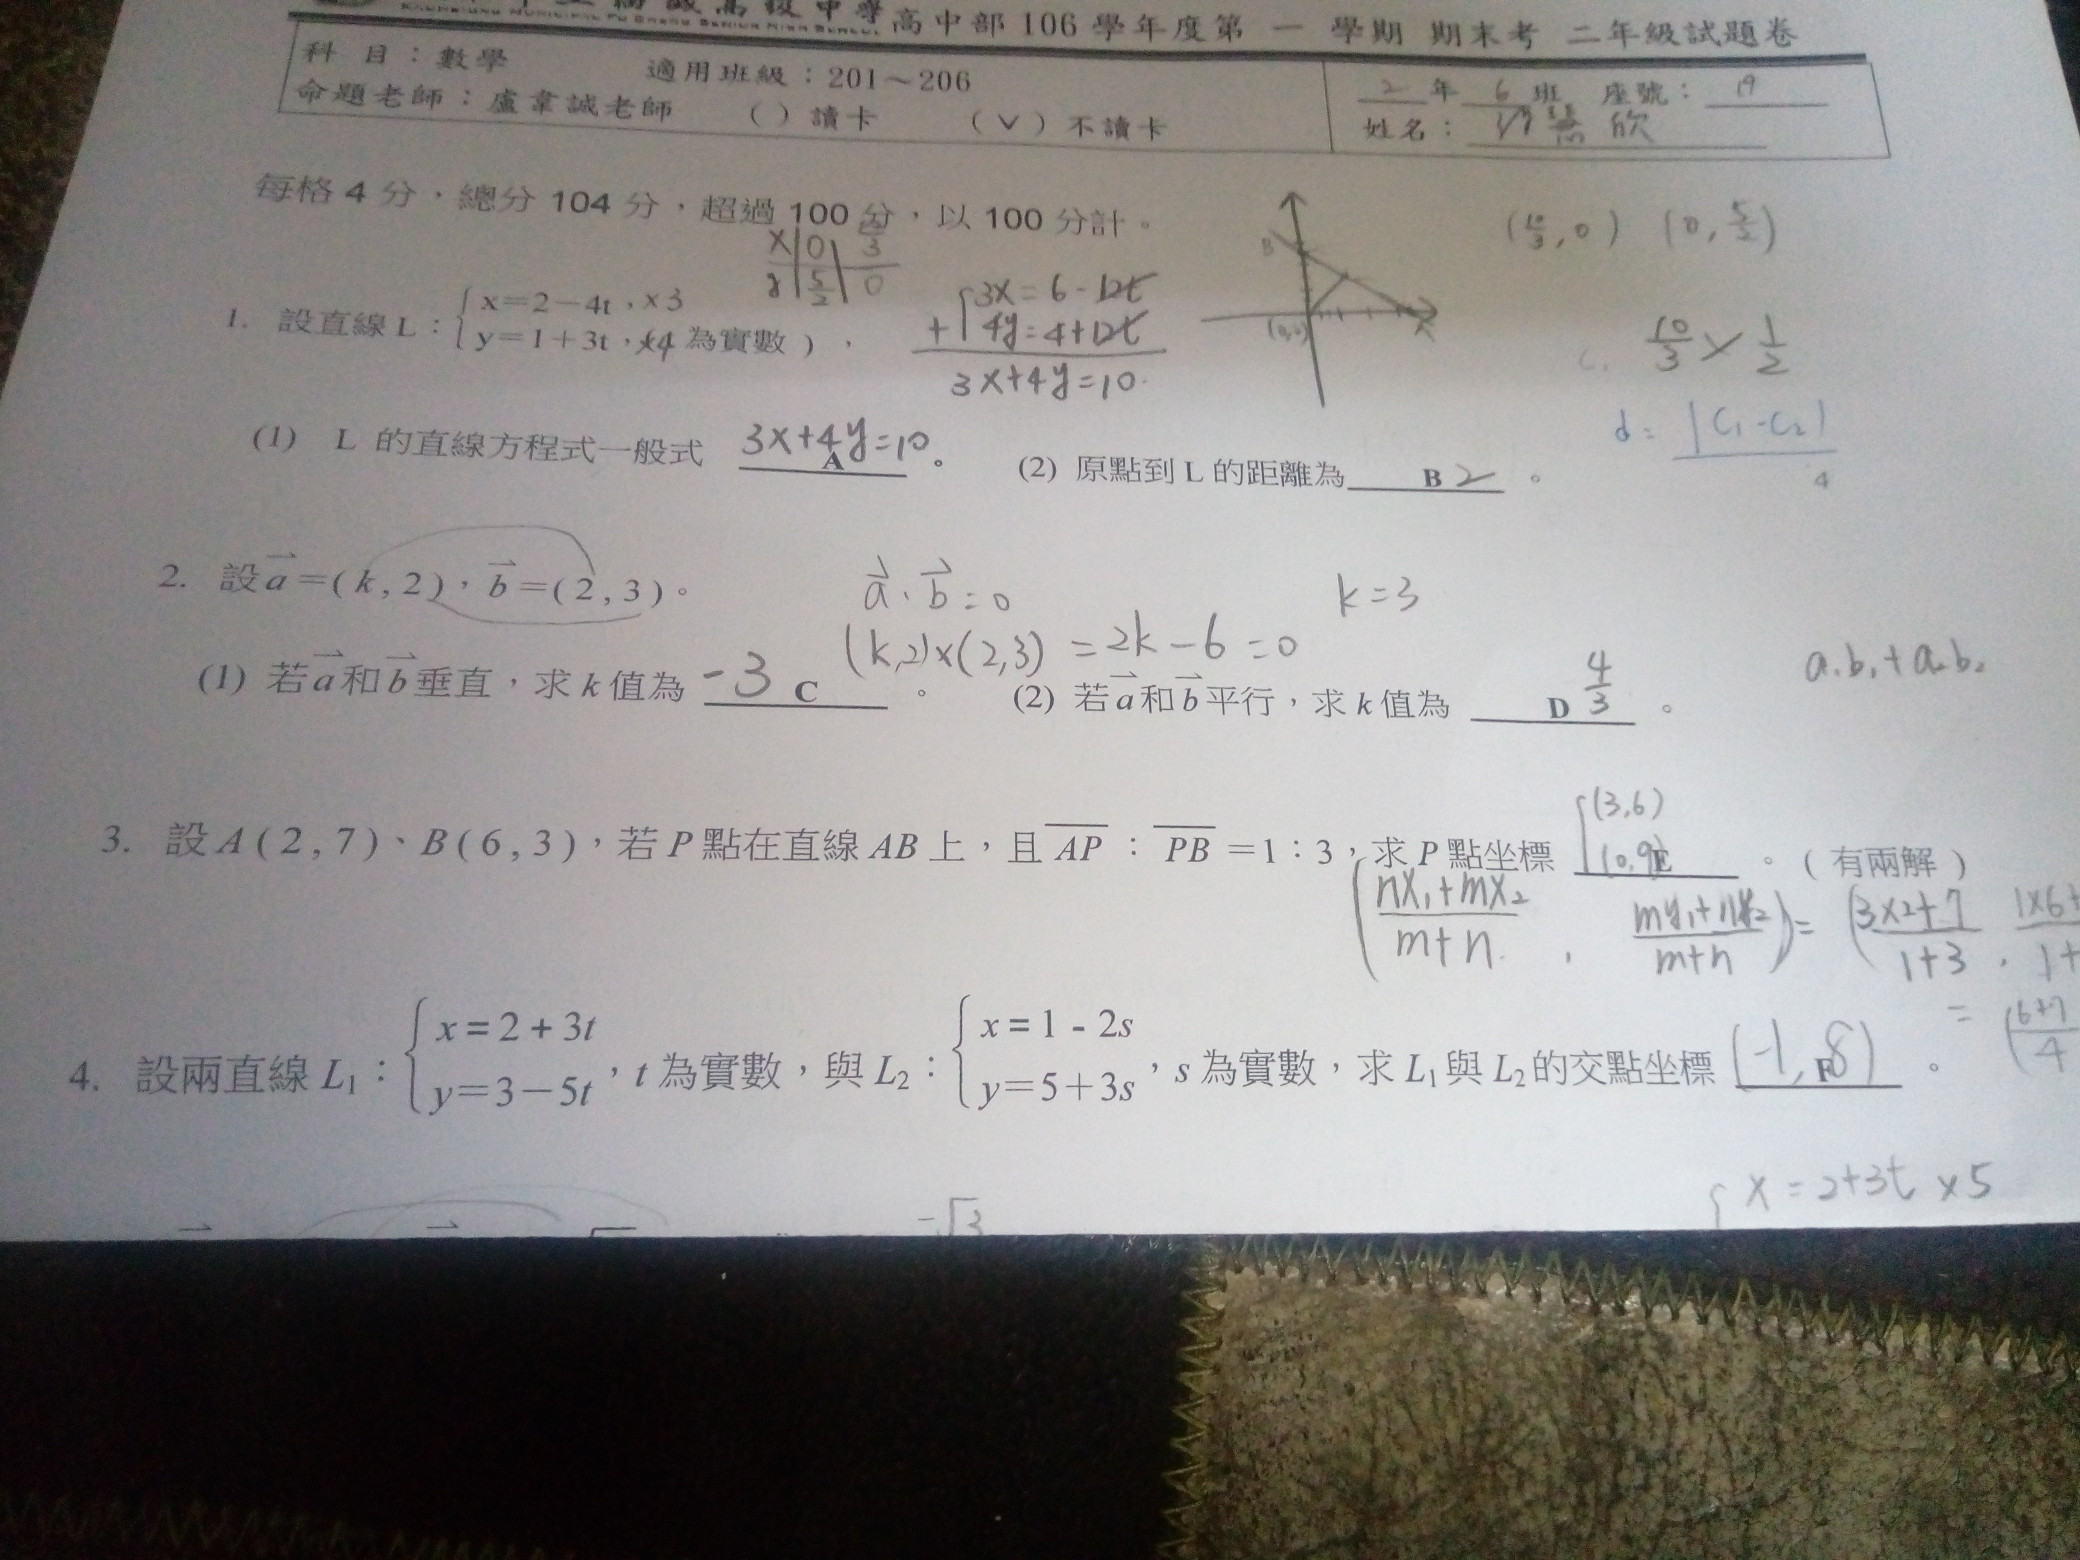 高級中學高中部 106 學年度第 一 學期 期末考 二年級試題卷
科 目：數學 適用班級：201～206
命題老師：盧韋誠老師 ( ) 讀卡 (∨) 不讀卡
2 年 6 班 座號： 19
姓名： 欣
每格 4 分，總分 104 分，超過 100 分，以 100 分計。
(10/3, 0) (0, 5/2)
x 0
y 5/2 0
1. 設直線 L：{ x＝2－4t , ×3
y＝1＋3t , ×4 為實數 ) ，
3x = 6 - 12t
+ 4y = 4 + 12t
3x+4y=10
(0,0)
10/3 × 1/2
d = |C1-C2|
4
(1) L 的直線方程式一般式 3x+4y=10 A 。 (2) 原點到 L 的距離為 B 2 。
2. 設 a⃗＝( k , 2 )，b⃗＝( 2 , 3 )。
a⃗ · b⃗ = 0 k = 3
(k,2)×(2,3) = 2k - 6 = 0
(1) 若 a⃗ 和 b⃗ 垂直，求 k 值為 -3 C 。 (2) 若 a⃗ 和 b⃗ 平行，求 k 值為 D 4/3 。
a1b1 + a2b2
3. 設 A ( 2 , 7 )、B ( 6 , 3 )，若 P 點在直線 AB 上，且 AP： PB＝1：3，求 P 點坐標 (3,6) (0,9) E 。( 有兩解 )
( (nx1+mx2)/(m+n) , (my1+ny2)/(m+n) ) = ( (3×2+7)/(1+3) , 1×6+
1+
= (6+7)/4
4. 設兩直線 L1：{ x = 2 + 3t
y＝3－5t ，t 為實數，與 L2：{ x = 1 - 2s
y＝5＋3s ，s 為實數，求 L1 與 L2 的交點坐標 (-1, 8) F 。
x = 2+3t ×5
-√3